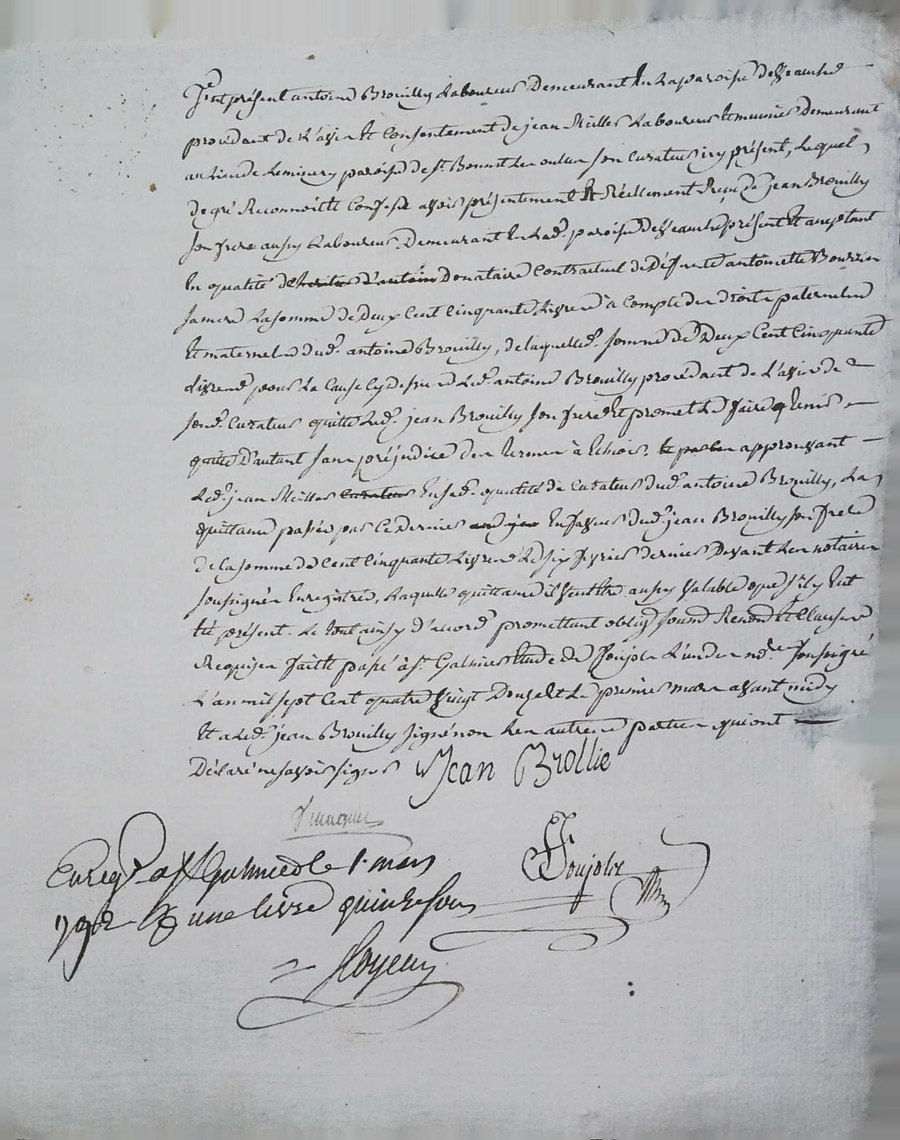 Fut présent antoine Brouilly Laboureur Demeurant En La paroisse de Veauche
procédant de L'avis Et Consentement de jean Millet Laboureur Et munier Demeurant
au Lieu de paroisse de st. Bonnet Les oulles son Curateur icy présent, Lequel
de gré Reconnoît Et Confesse avoir présentement Et Réellement Reçu de jean Brouilly
son frere aussy Laboureur Demeurant En Lad. paroisse de Veauche présent Et acceptant
En qualité de heritier d'antoine Donataire Contractuel de Deffunte antoinette
sa mere La somme de Deux Cent Cinquante Livres à Compte des droits paternels
Et maternels dud. antoine Brouilly, de laquelle d. somme de Deux Cent Cinquante
Livres pour La Cause Cy dessus Led. antoine Brouilly procédant de L'avis de
sond. Curateur quitte Led. jean Brouilly son frere Et promet Le faire tenir
quitte D'autant sans préjudice des termes à Echoir. approuvant
Led. jean Millet Curateur En sad. qualité de Curateur dud. antoine Brouilly, La
quittance passée par Ce Dernier En faveur dud. jean Brouilly son frere
de la somme de Cent Cinquante Livres Le six fevrier dernier Devant Les notaires
soussignés Enregistrée, Laquelle quittance il veut Etre aussy valable que s'il y Eut
été présent. Le tout ainsy d'accord promettant oblig. soumis. Renon. Et Clauses
Requises faitte passé à st. Galmier Etude de Soujole L'un des nores. soussigné
L'an mil sept Cent quatre vingt Douze Et Le premier mars avant midy
Et a Led. jean Brouilly signé non Les autres parties qui ont
Déclaré ne savoir signer Jean Brollie
Soujole
Enregé. a st Galmier le 1. mars
1792 une livre quinze sous